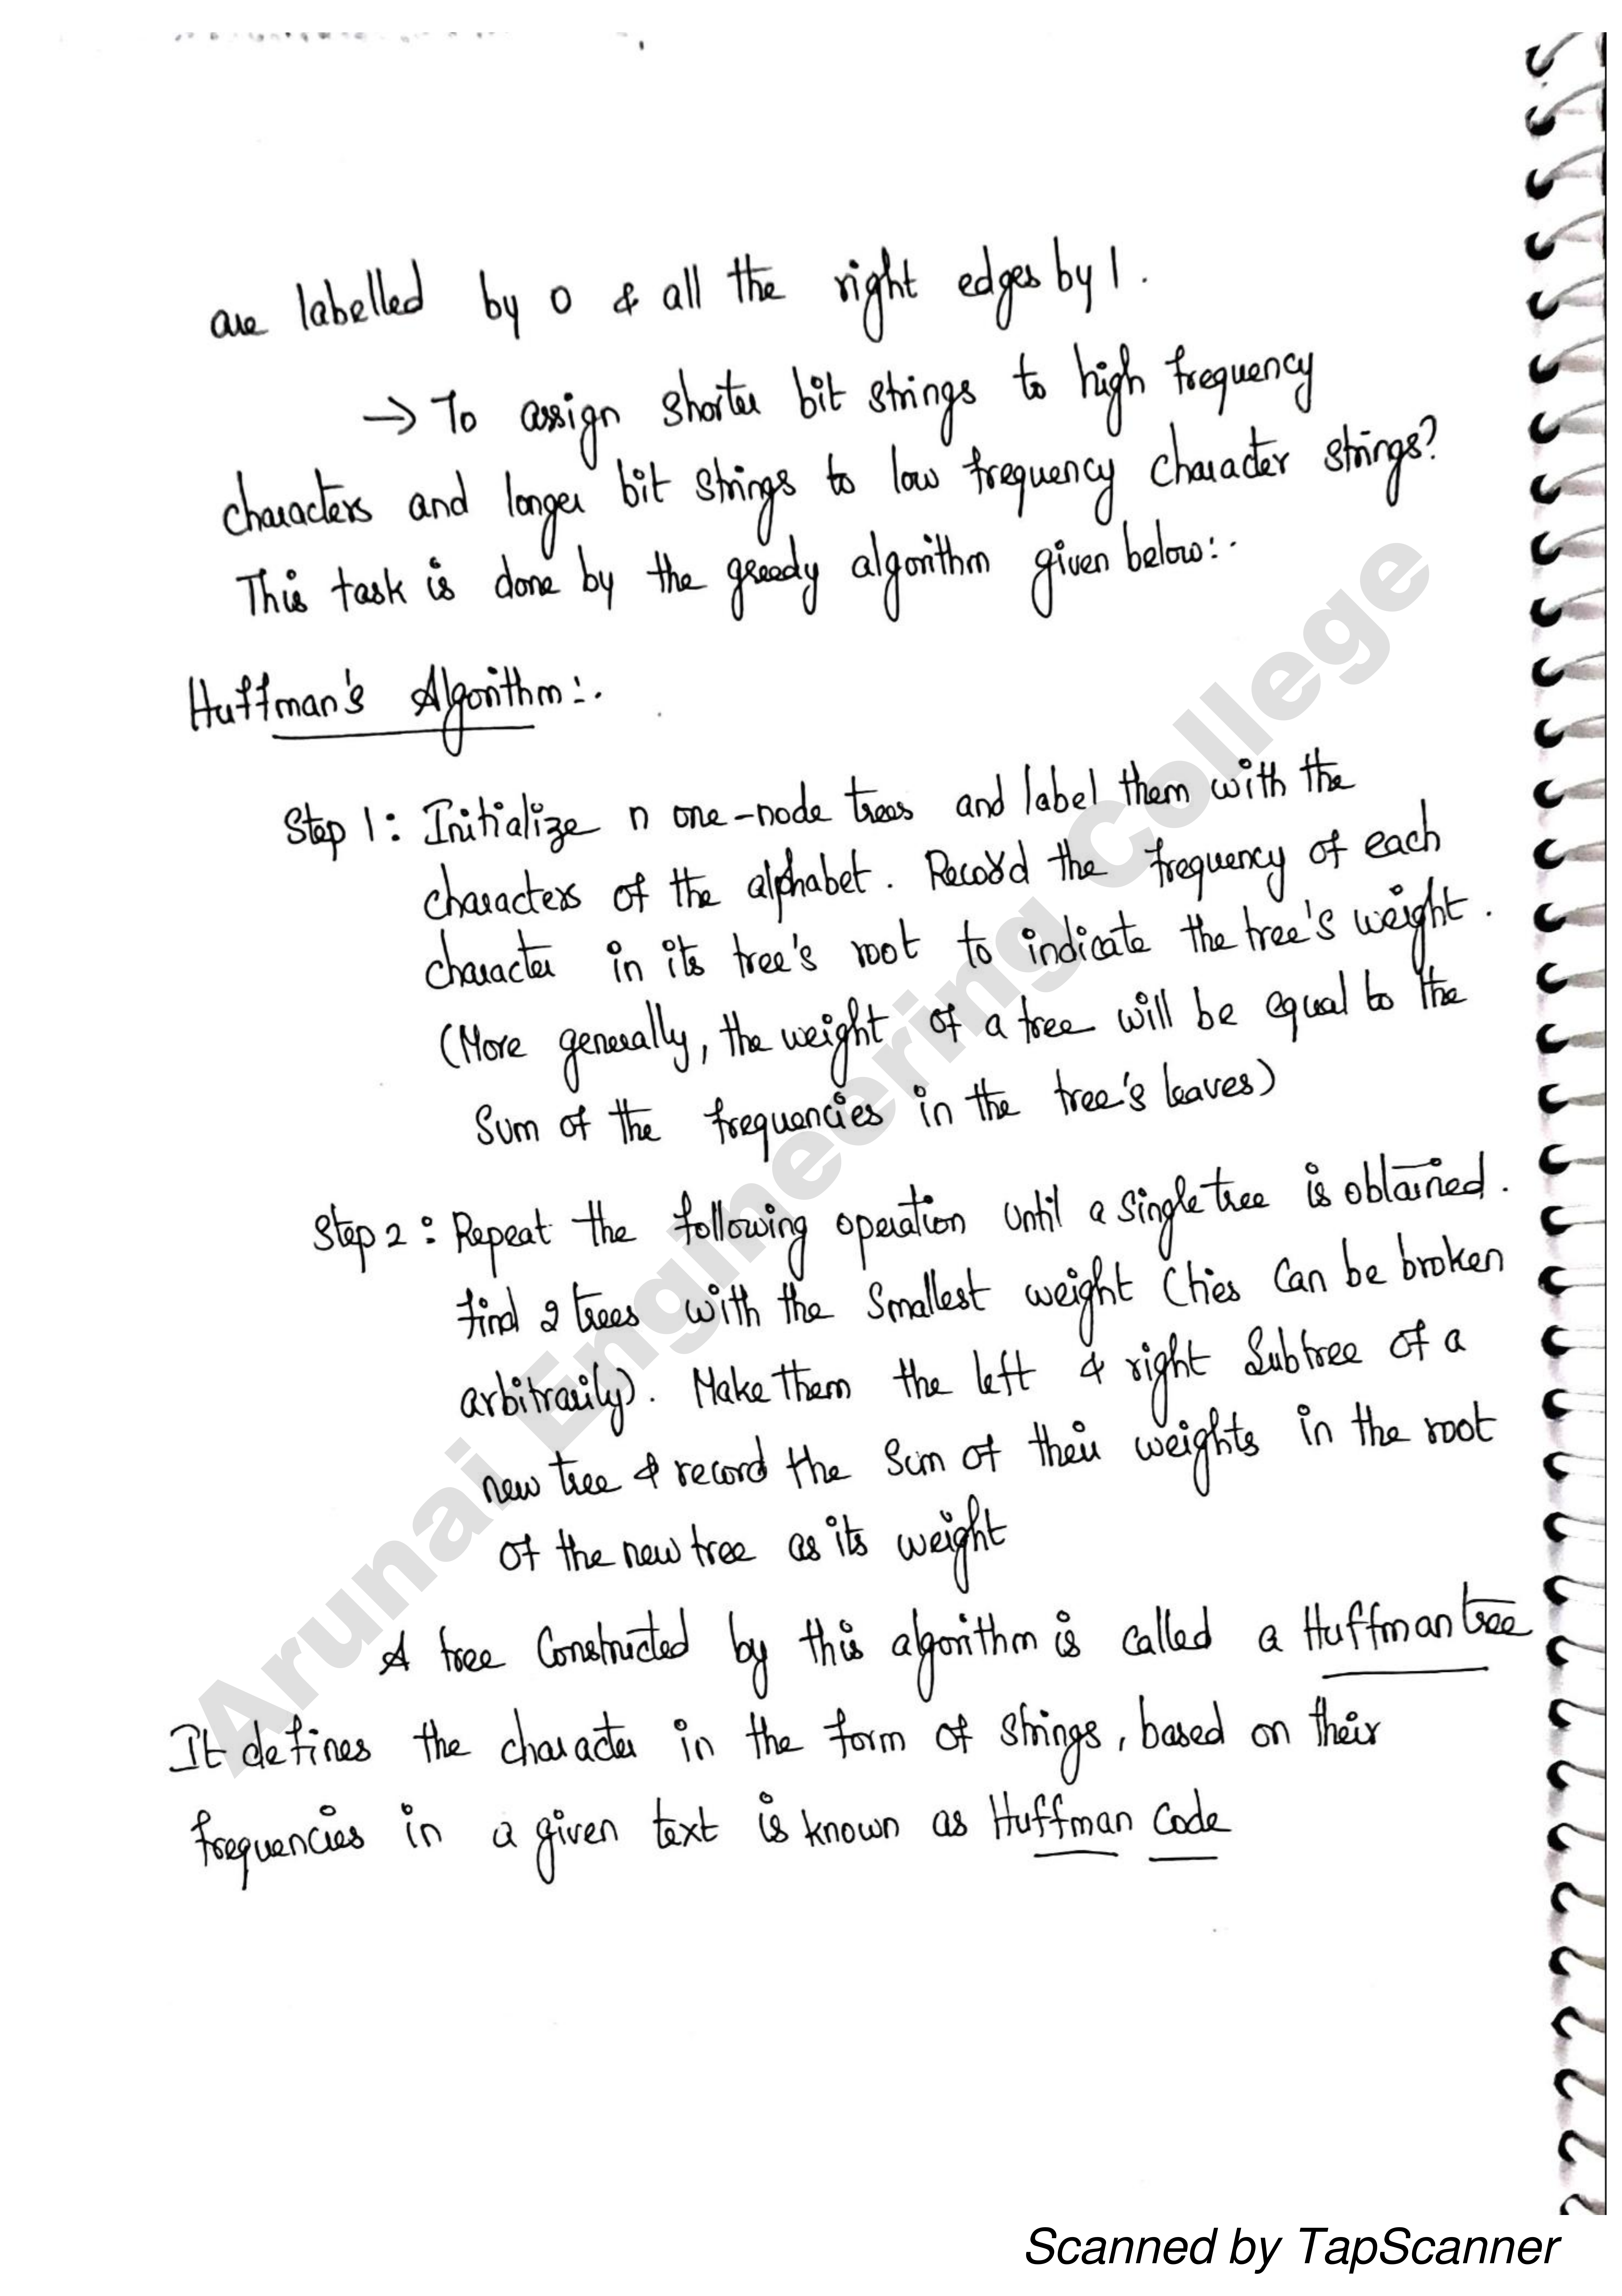 are labelled by 0 & all the right edges by 1.
→ To assign shorter bit strings to high frequency
characters and longer bit strings to low frequency character strings?
This task is done by the greedy algorithm given below:-
Huffman's Algorithm:-
Step 1: Initialize n one-node trees and label them with the
characters of the alphabet. Record the frequency of each
character in its tree's root to indicate the tree's weight.
(More generally, the weight of a tree will be equal to the
Sum of the frequencies in the tree's leaves)
Step 2: Repeat the following operation until a single tree is obtained.
find 2 trees with the smallest weight (ties can be broken
arbitrarily). Make them the left & right Subtree of a
new tree & record the sum of their weights in the root
of the new tree as its weight
A tree Constructed by this algorithm is called a Huffman tree
It defines the character in the form of strings, based on their
frequencies in a given text is known as Huffman Code
Arunai Engineering College
Scanned by TapScanner